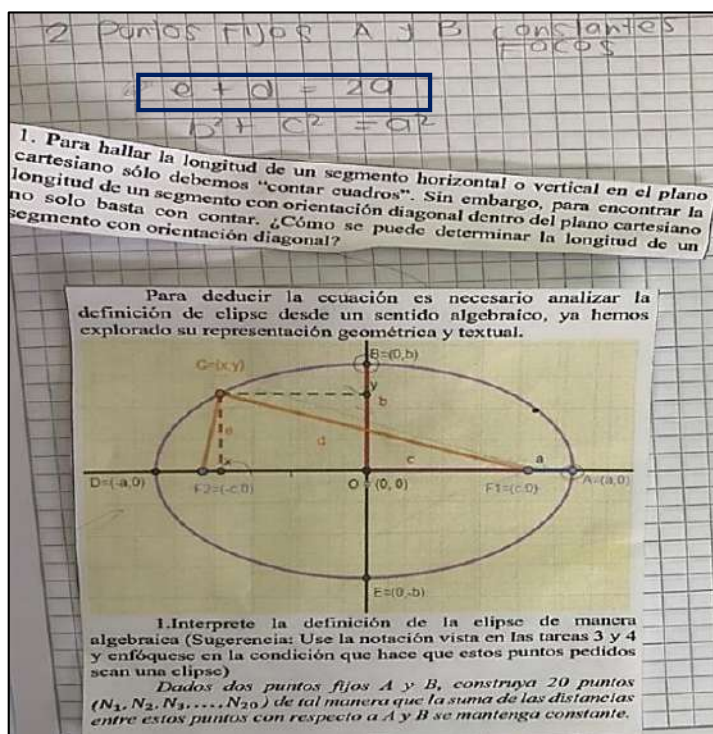 2 Puntos Fijos A y B constantes
Focos
e + d = 2a
b² + c² = a²
1. Para hallar la longitud de un segmento horizontal o vertical en el plano
cartesiano sólo debemos “contar cuadros”. Sin embargo, para encontrar la
longitud de un segmento con orientación diagonal dentro del plano cartesiano
no solo basta con contar. ¿Cómo se puede determinar la longitud de un
segmento con orientación diagonal?
Para deducir la ecuación es necesario analizar la
definición de elipse desde un sentido algebraico, ya hemos
explorado su representación geométrica y textual.
B=(0,b)
G=(x,y)
y
b
e
d
x
c
a
D=(-a,0)
F2=(-c,0)
O = (0, 0)
F1=(c,0)
A=(a,0)
E=(0,-b)
1.Interprete la definición de la elipse de manera
algebraica (Sugerencia: Use la notación vista en las tareas 3 y 4
y enfóquese en la condición que hace que estos puntos pedidos
sean una elipse)
Dados dos puntos fijos A y B, construya 20 puntos
(N₁, N₂, N₃,...., N₂₀) de tal manera que la suma de las distancias
entre estos puntos con respecto a A y B se mantenga constante.